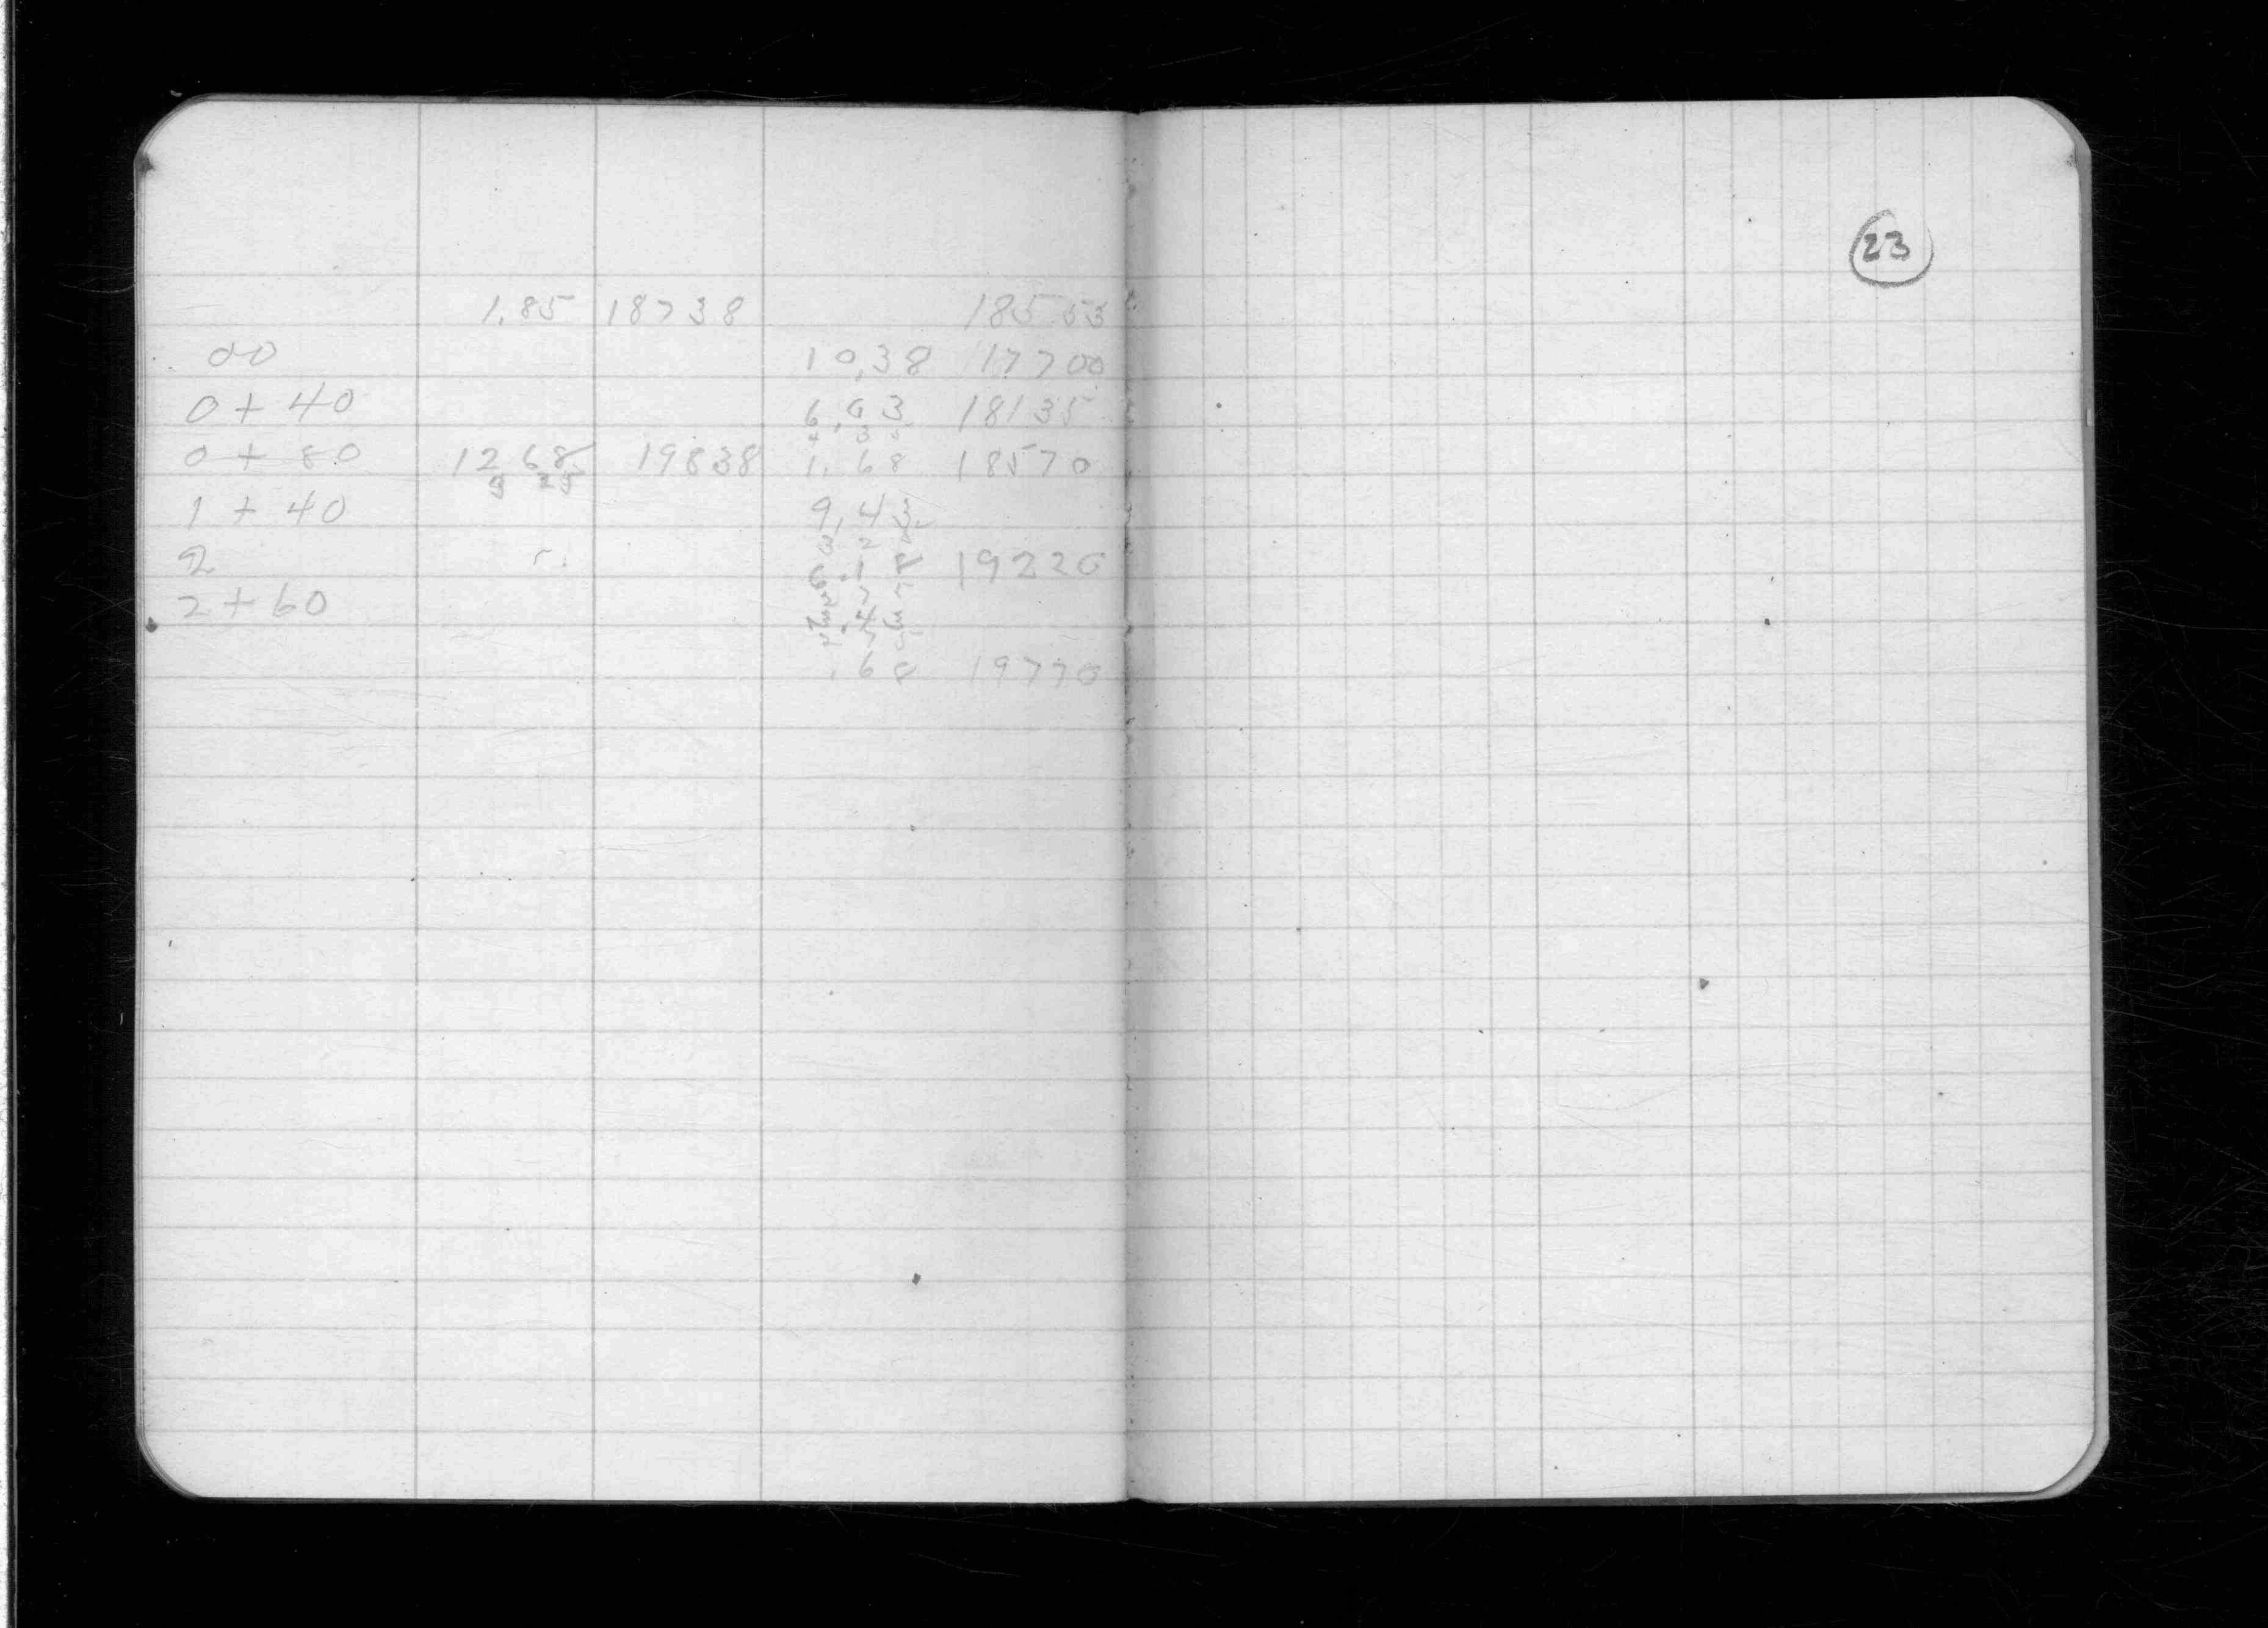 23
1.85 18738 18553
00 10.38 17700
0 + 40 6.03 18135
4 35
0 + 80 12 68 19838 1.68 18570
1 + 40 9.43
2 6.18 19220
2 + 60
.68 19770